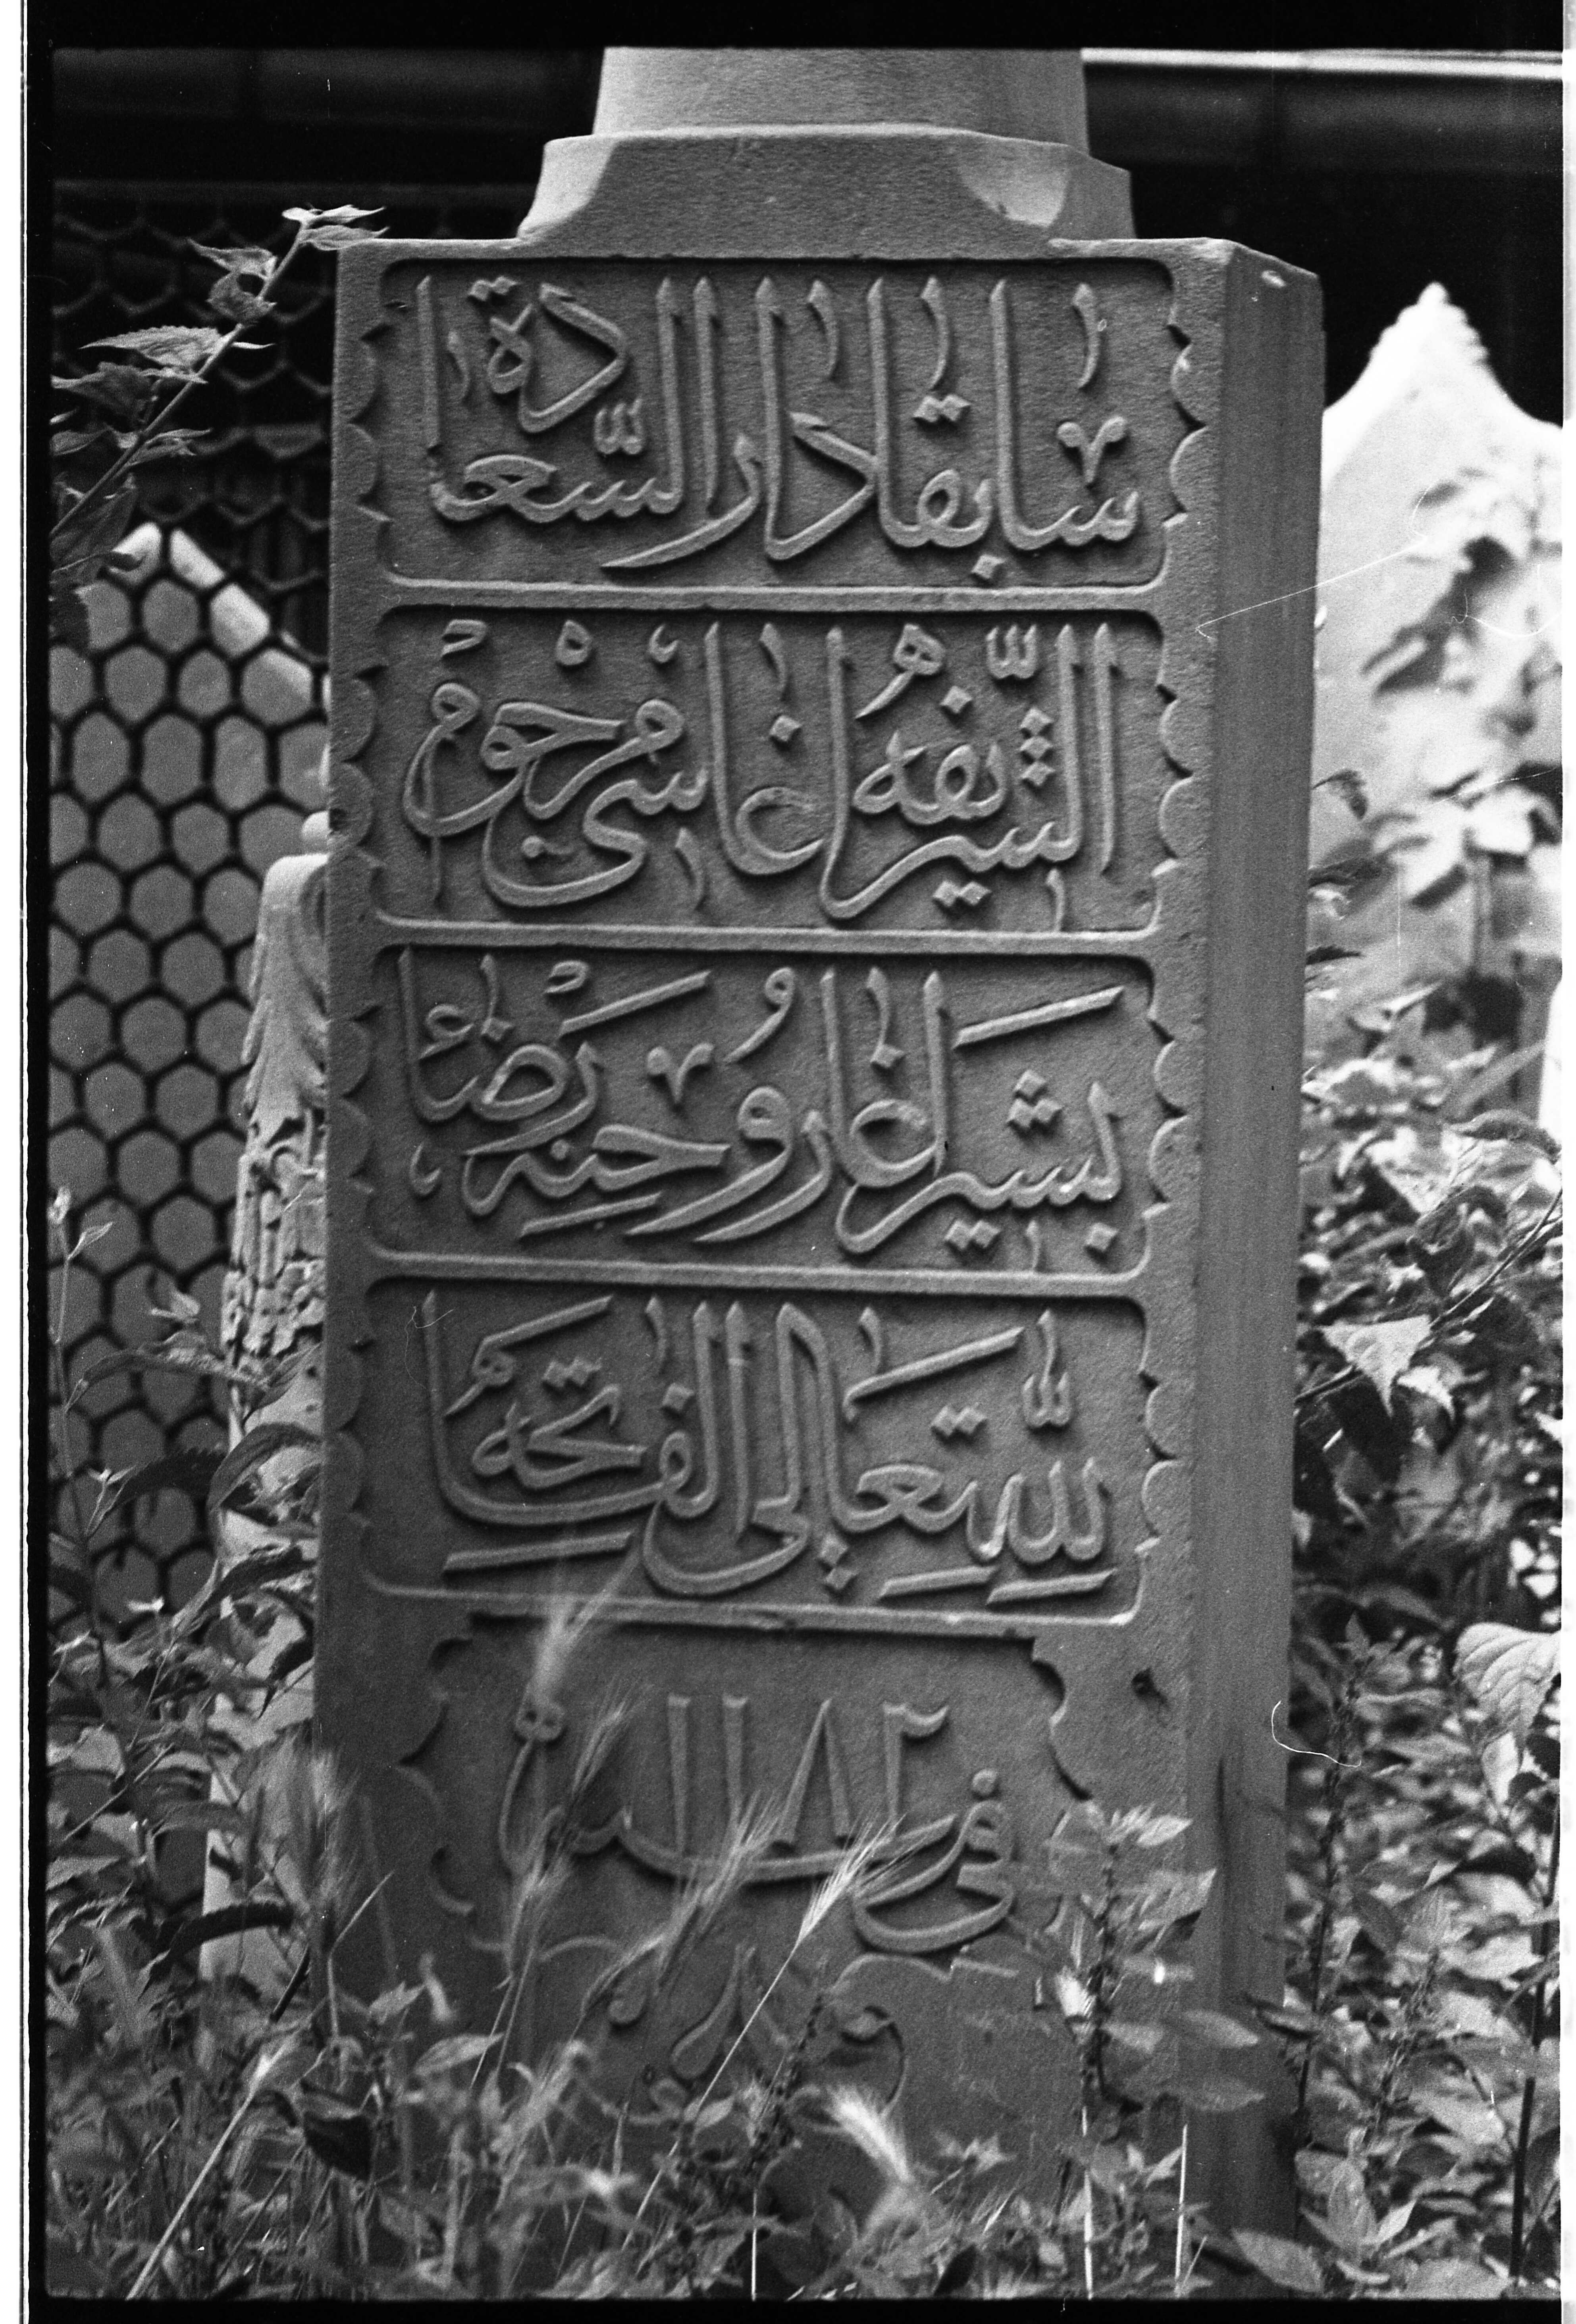 سابقا دار السّعادة
الشّريفه اغاسى مرحوم
بشير اغا روحنه رضاء
لله تعالى الفاتحه
فى سنة ١١٨٢